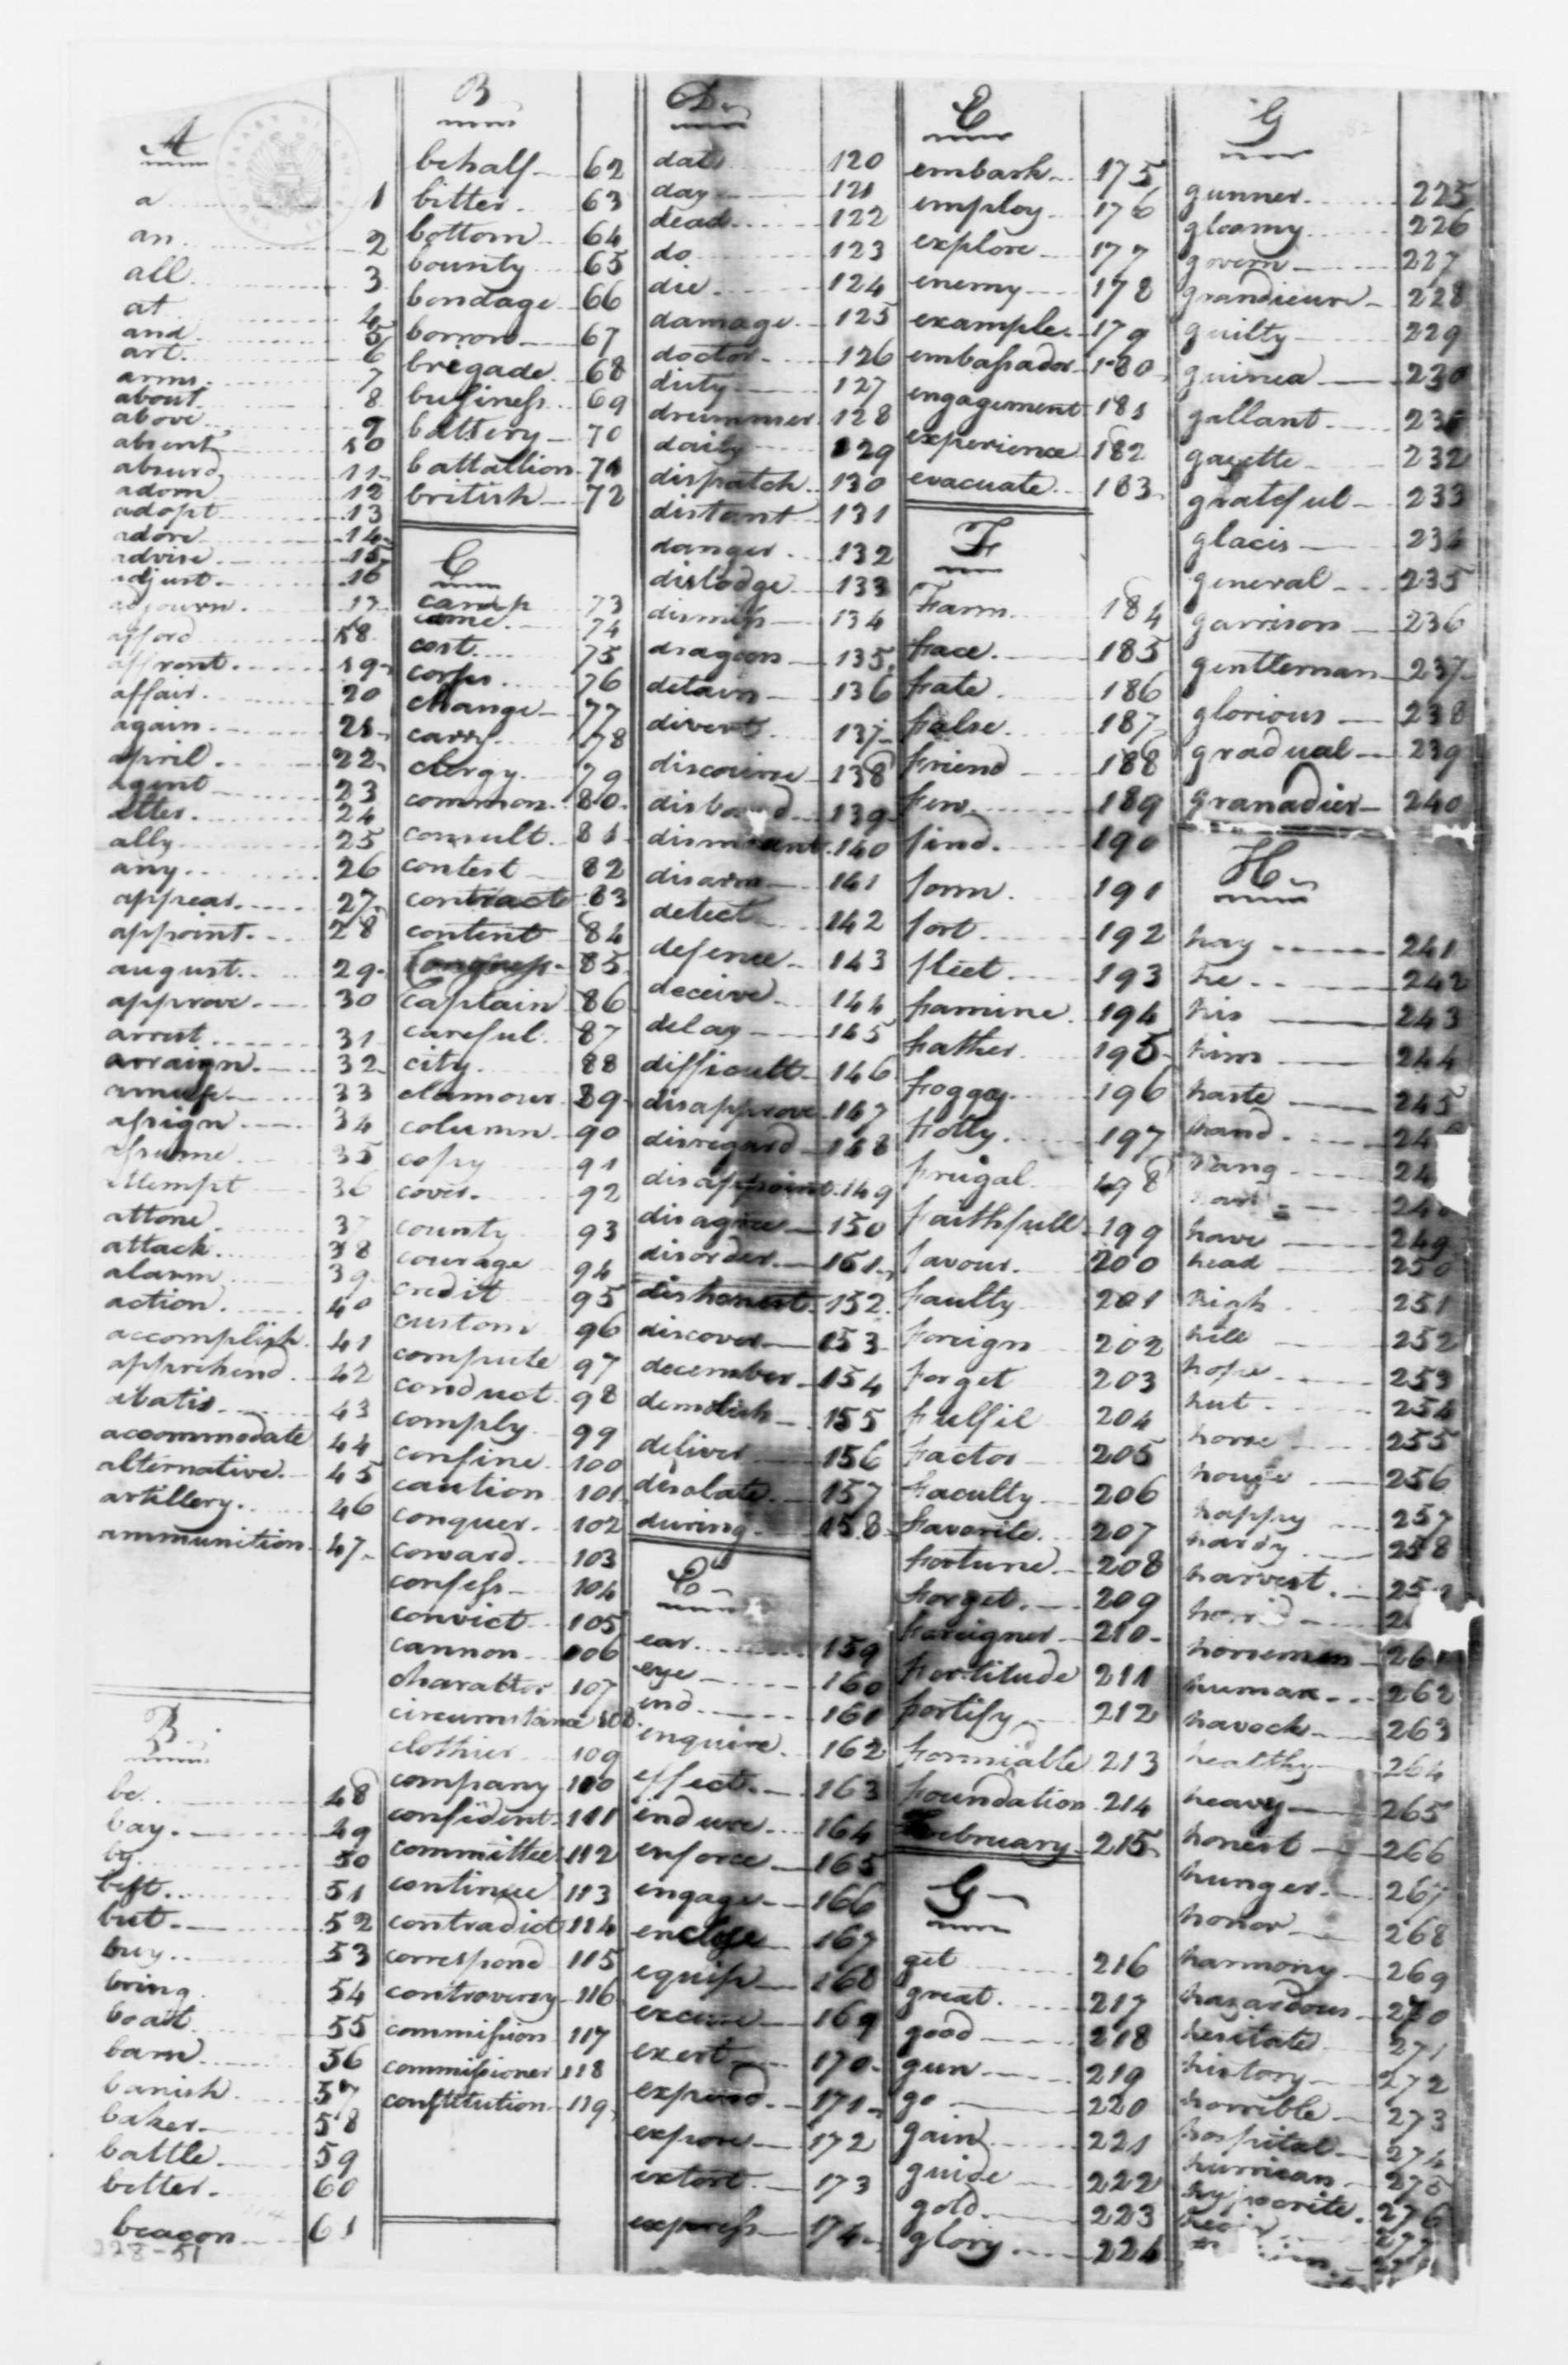 A
a 1
an 2
all 3
at 4
and 5
art 6
arms 7
about 8
above 9
absent 10
absurd 11
adorn 12
adopt 13
adore 14
advise 15
adjust 16
adjourn 17
afford 18
affront 19
affair 20
again 21
april 22
agent 23
alter 24
ally 25
any 26
appear 27
appoint 28
august 29
approve 30
arrest 31
arraign 32
amuse 33
assign 34
assume 35
attempt 36
attone 37
attack 38
alarm 39
action 40
accomplish 41
apprehend 42
abatis 43
accommodate 44
alternative 45
artillery 46
ammunition 47
B
be 48
bay 49
by 50
best 51
but 52
buy 53
bring 54
boat 55
barn 56
banish 57
baker 58
battle 59
better 60
beacon 61
228-51
B
behalf 62
bitter 63
bottom 64
bounty 65
bondage 66
borrow 67
brigade 68
business 69
battery 70
battallion 71
british 72
C
camp 73
came 74
cost 75
corps 76
change 77
carry 78
clergy 79
common 80
consult 81
contest 82
contract 83
content 84
Congress 85
Captain 86
careful 87
city 88
clamour 89
column 90
copy 91
cover 92
county 93
courage 94
credit 95
custom 96
compute 97
conduct 98
comply 99
confine 100
caution 101
conquer 102
coward 103
confess 104
convict 105
cannon 106
charatter 107
circumstance 108
clothier 109
company 110
confident 111
committee 112
continue 113
contradict 114
correspond 115
controversy 116
commission 117
commissioner 118
constitution 119
D
date 120
day 121
dead 122
do 123
die 124
damage 125
doctor 126
duty 127
drummer 128
daily 129
dispatch 130
distant 131
danger 132
dislodge 133
dismiss 134
dragoon 135
detain 136
divert 137
discourse 138
disband 139
dismount 140
disarm 141
detect 142
defence 143
deceive 144
delay 145
difficult 146
disapprove 147
disregard 148
disappoint 149
disagree 150
disorder 151
dishonest 152
discover 153
december 154
demolish 155
deliver 156
desolate 157
during 158
E
ear 159
eye 160
end 161
enquire 162
effect 163
endure 164
enforce 165
engage 166
enclose 167
equip 168
excuse 169
exert 170
expend 171
expose 172
extort 173
express 174
E
embark 175
employ 176
explore 177
enemy 178
example 179
embassador 180
engagement 181
experience 182
evacuate 183
F
Farm 184
face 185
fate 186
false 187
friend 188
few 189
find 190
form 191
fort 192
fleet 193
famine 194
father 195
foggy 196
folly 197
frugal 198
faithfull 199
favour 200
faulty 201
foreign 202
forget 203
fulfil 204
factor 205
faculty 206
favorite 207
fortune 208
forget 209
foreigner 210
fortitude 211
fortify 212
formiable 213
foundation 214
February 215
G
get 216
great 217
good 218
gun 219
go 220
gain 221
guide 222
gold 223
glory 224
G
gunner 225
gloomy 226
govern 227
grandieure 228
guilty 229
guinea 230
gallant 231
gazette 232
grateful 233
glacis 234
general 235
garrison 236
gentleman 237
glorious 238
gradual 239
granadier 240
H
hay 241
he 242
his 243
him 244
haste 245
hand 24
hang 24
24
have 249
head 250
high 251
hill 252
hope 253
hut 254
horse 255
house 256
happy 257
hardy 258
harvest 25
horrid 2
horsemen 261
human 262
havock 263
healthy 264
heavy 265
honest 266
hunger 267
honor 268
harmony 269
hazardous 270
hesitate 271
history 272
horrible 273
hospital 274
hurrican 275
hypocrite 276
277